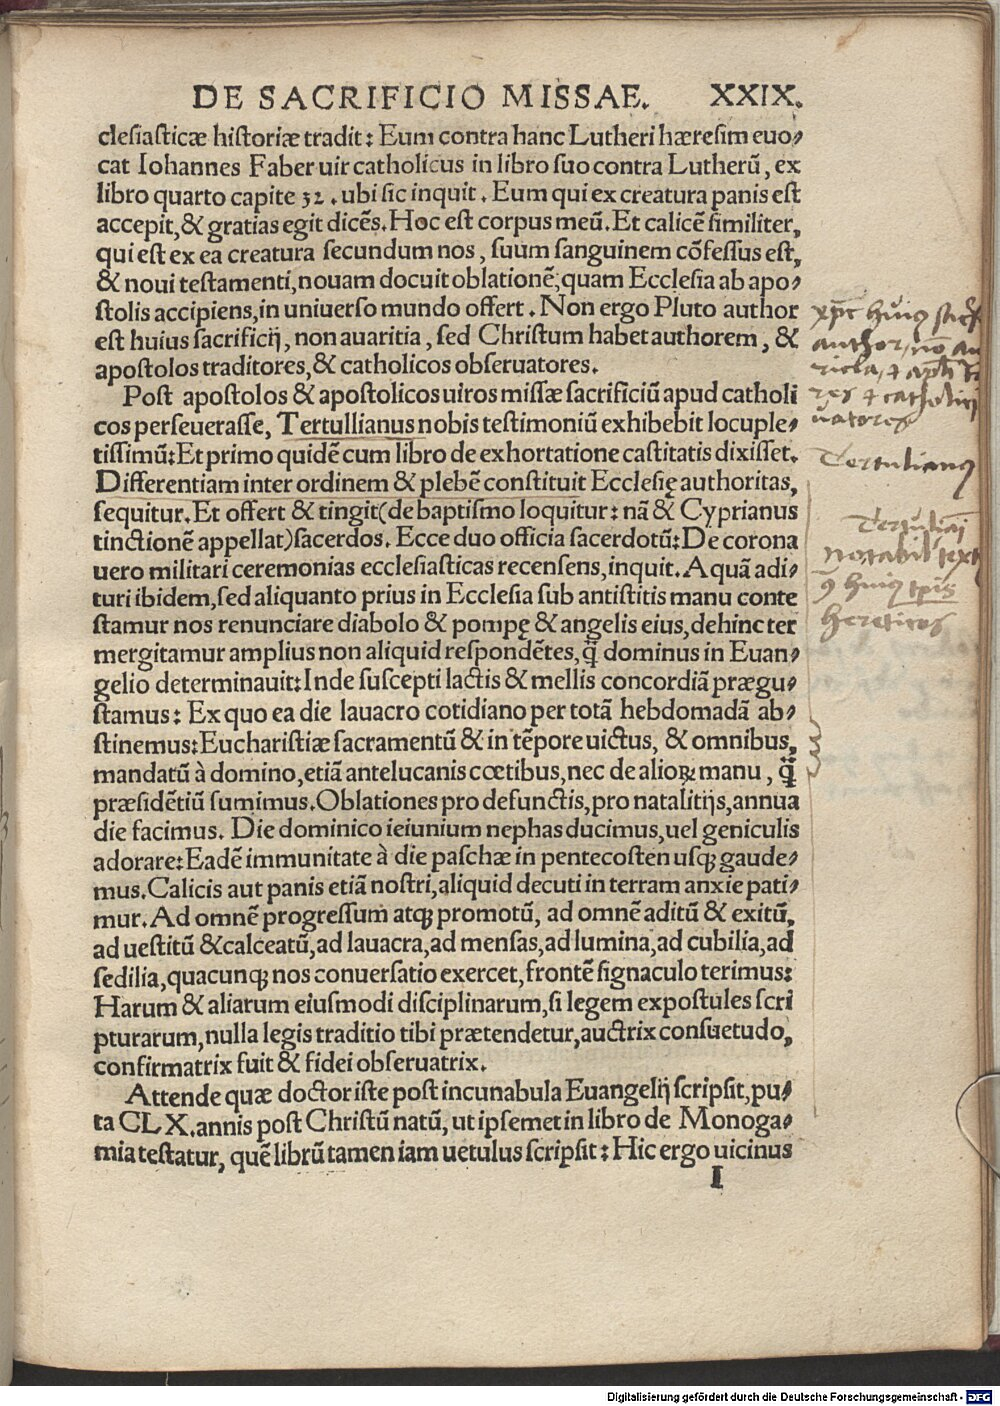 DE SACRIFICIO MISSAE. XXIX.
clesiasticæ historiæ tradit: Eum contra hanc Lutheri hæresim euo-
cat Iohannes Faber uir catholicus in libro suo contra Lutherũ, ex
libro quarto capite 32. ubi sic inquit. Eum qui ex creatura panis est
accepit, & gratias egit dicẽs. Hoc est corpus meũ. Et calicẽ similiter,
qui est ex ea creatura secundum nos, suum sanguinem cõfessus est,
& noui testamenti, nouam docuit oblationẽ, quam Ecclesia ab apo-
stolis accipiens, in uniuerso mundo offert. Non ergo Pluto author
est huius sacrificij, non auaritia, sed Christum habet authorem, &
apostolos traditores, & catholicos obseruatores.
Post apostolos & apostolicos uiros missæ sacrificiũ apud catholi
cos perseuerasse, Tertullianus nobis testimoniũ exhibebit locuple-
tissimũ: Et primo quidẽ cum libro de exhortatione castitatis dixisset.
Differentiam inter ordinem & plebẽ constituit Ecclesię authoritas,
sequitur. Et offert & tingit (de baptismo loquitur: nã & Cyprianus
tinctionẽ appellat) sacerdos. Ecce duo officia sacerdotũ: De corona
uero militari ceremonias ecclesiasticas recensens, inquit. Aquã adi-
turi ibidem, sed aliquanto prius in Ecclesia sub antistitis manu conte
stamur nos renunciare diabolo & pompę & angelis eius, dehinc ter
mergitamur amplius non aliquid respondẽtes, q̃ dominus in Euan-
gelio determinauit: Inde suscepti lactis & mellis concordiã prægu-
stamus: Ex quo ea die lauacro cotidiano per totã hebdomadã ab-
stinemus: Eucharistiæ sacramentũ & in tẽpore uictus, & omnibus,
mandatũ à domino, etiã antelucanis cœtibus, nec de alioꝝ manu, q̃
præsidẽtiũ sumimus. Oblationes pro defunctis, pro natalitijs, annua
die facimus. Die dominico ieiunium nephas ducimus, uel geniculis
adorare: Eadẽ immunitate à die paschæ in pentecosten usqꝫ gaude-
mus. Calicis aut panis etiã nostri, aliquid decuti in terram anxie pati-
mur. Ad omnẽ progressum atqꝫ promotũ, ad omnẽ aditũ & exitũ,
ad uestitũ & calceatũ, ad lauacra, ad mensas, ad lumina, ad cubilia, ad
sedilia, quacunqꝫ nos conuersatio exercet, frontẽ signaculo terimus:
Harum & aliarum eiusmodi disciplinarum, si legem expostules scri
pturarum, nulla legis traditio tibi prætendetur, auctrix consuetudo,
confirmatrix fuit & fidei obseruatrix.
Attende quæ doctor iste post incunabula Euangelij scripsit, pu-
ta CLX. annis post Christũ natũ, ut ipsemet in libro de Monoga-
mia testatur, quẽ librũ tamen iam uetulus scripsit: Hic ergo uicinus
I
author, nō
Tertulianꝰ
hereticos
Digitalisierung gefördert durch die Deutsche Forschungsgemeinschaft - DFG